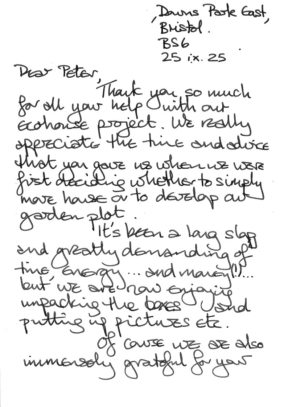 , Downs Park East,
Bristol.
BS6
25 ix. 25
Dear Peter,
Thank you so much
for all your help with our
Ecohouse project. We really
appreciate the time and advice
that you gave us when we were
first deciding whether to simply
move house or to develop our
garden plot.
It's been a long slog
and greatly demanding of
time, energy... and money(!)...
but we are now enjoying
unpacking the boxes and
putting up pictures etc.
Of cause we are also
immensely grateful for your